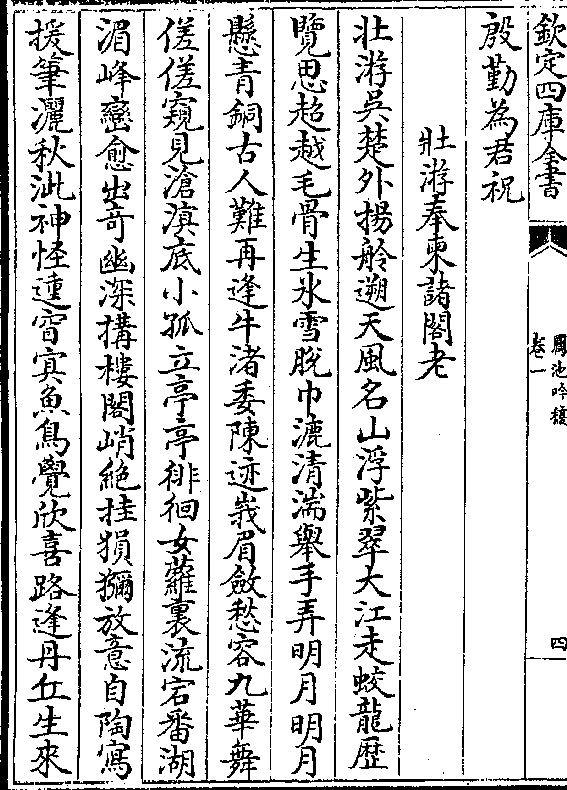 欽定四庫全書
圎池吟稿
卷一
四
殷勤為君祝
壯游奉柬諸閣老
壯游吳楚外揚舲遡天風名山浮紫翠大江走蛟龍歴
覽思超越毛骨生氷雪脱巾漉清湍舉手弄明月明月
懸青銅古人難再逢牛渚委陳迹峩眉斂愁容九華舞
傞傞窺見滄溟底小孤立亭亭徘徊女蘿裏流宕番湖
湄峰巒愈出竒幽深搆樓閣峭絶挂猿獼放意自陶寫
援筆灑秋泚神怪遁窅冥魚鳥覺欣喜路逢丹丘生來